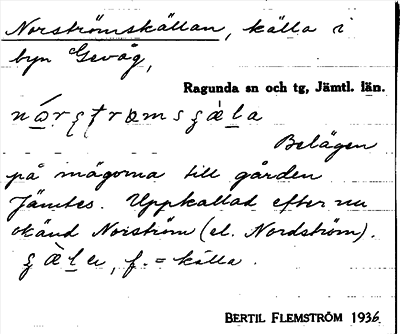 Norströmskällan, källa i
byn Gevåg,
Ragunda sn och tg, Jämtl. län.
Belägen
på mägorna till gården
Jämtes. Uppkallad efter nu
okänd Norström (el. Nordström).
f. = källa.
BERTIL FLEMSTRÖM 1936